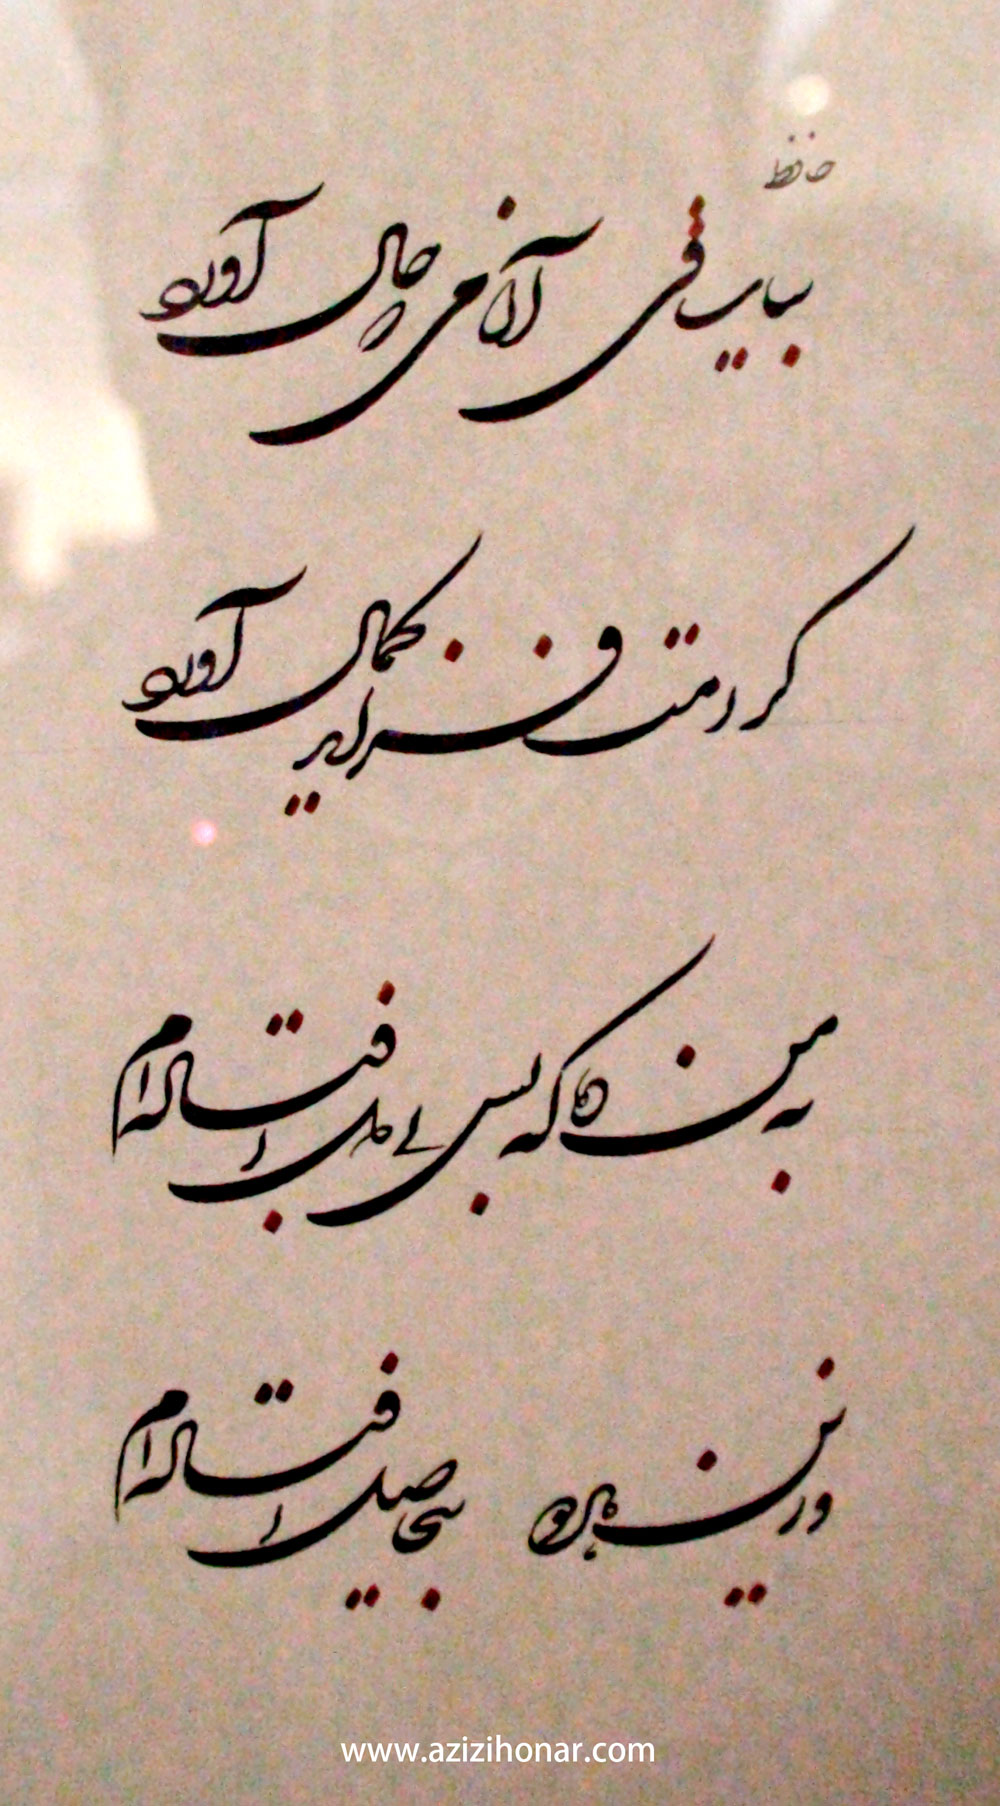 حافظ
بیا ساقی آن می که حال آورد
کرامت فزاید کمال آورد
به من ده که بس بی‌دل افتاده‌ام
وزین هر دو بی‌حاصل افتاده‌ام
www.azizihonar.com